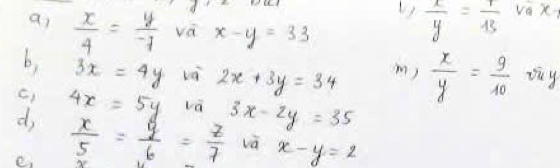 a) x/4 = y/-7 và x - y = 33
b) 3x = 4y và 2x + 3y = 34
c) 4x = 5y và 3x - 2y = 35
d) x/5 = y/6 = z/7 và x - y = 2
e)
x/y = /13 và x
m) x/y = 9/10 và y